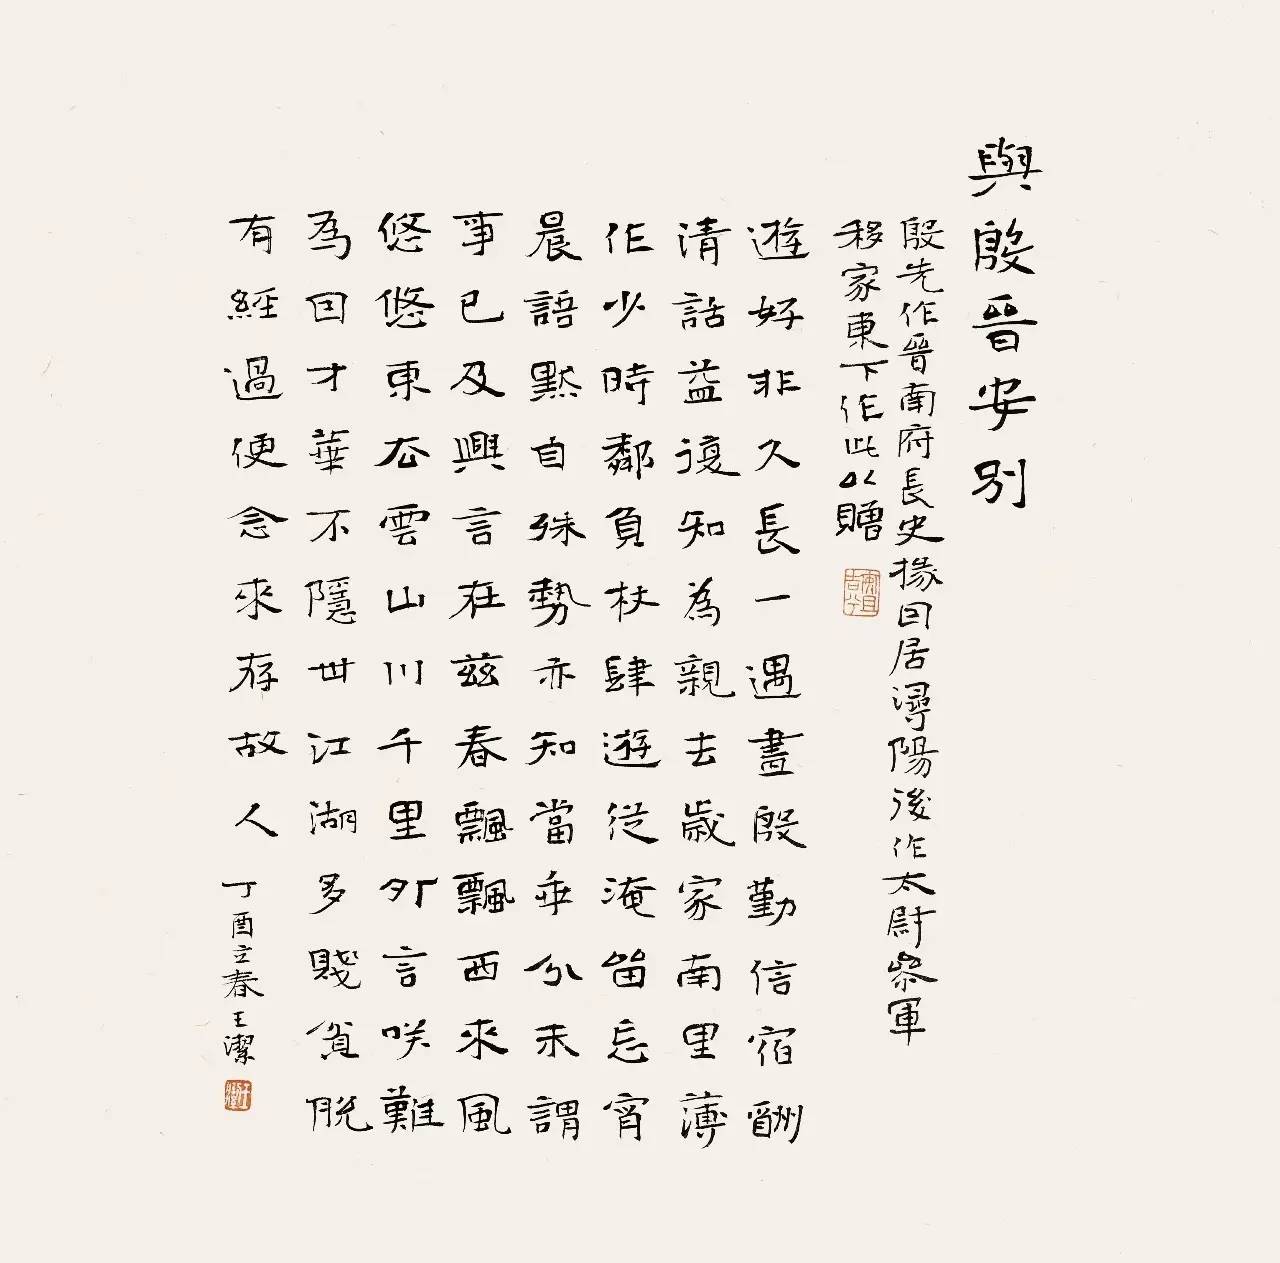 與殷晉安別
殷先作晉南府長史掾因居潯陽後作太尉參軍
移家東下作此以贈
遊好非久長一遇盡殷勤信宿酬
清話益復知為親去歲家南里薄
作少時鄰負杖肆遊從淹留忘宵
晨語默自殊勢亦知當乖分未謂
事已及興言在茲春飄飄西來風
悠悠東去雲山川千里外言笑難
為因才華不隱世江湖多賤貧脫
有經過便念來存故人
丁酉立春王潔